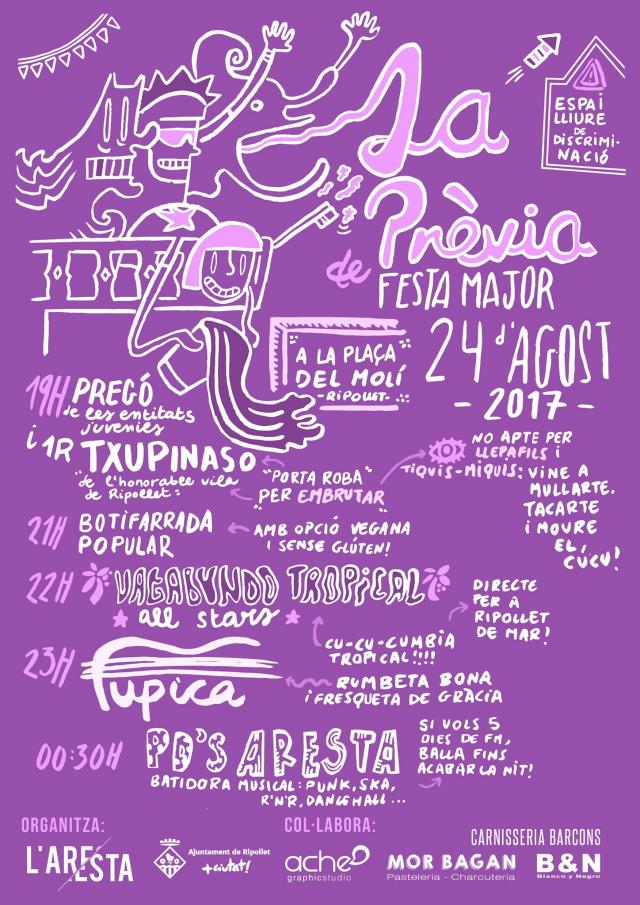 La
Prèvia
de
FESTA MAJOR
24 d'AGOST
- 2017 -
ESPAI
LLIURE
DE
DISCRIMI-
NACIÓ
A LA PLAÇA
DEL MOLÍ
- RIPOLLET -
19H PREGÓ
de les entitats
juvenils
i 1R TXUPINASO
de l'honorable vila
de Ripollet:
"PORTA ROBA"
PER EMBRUTAR
NO APTE PER
LLEPAFILS I
TIQUIS-MIQUIS: VINE A
MULLARTE,
TACARTE
i MOURE
EL,
CUCU!
21H BOTIFARRADA
POPULAR
AMB OPCIÓ VEGANA
I SENSE GLÚTEN!
22H VAGABUNDO TROPICAL
all stars
DIRECTE
PER A
RIPOLLET
DE MAR!
CU-CU-CUMBIA
TROPICAL!!!!
23H Tupica
RUMBETA BONA
i FRESQUETA DE GRÀCIA
00:30H PD'S ARESTA
BATIDORA MUSICAL: PUNK, SKA,
R'N'R, DANCEHALL ...
SI VOLS 5
DIES DE FM,
BALLA FINS
ACABAR LA NIT!
ORGANITZA:
L'ARESTA
Ajuntament de Ripollet
+ciutat!
COL·LABORA:
ache
graphicstudio
CARNISSERIA BARCONS
MOR BAGAN
Pasteleria - Charcuteria
B&N
Blanco y Negro